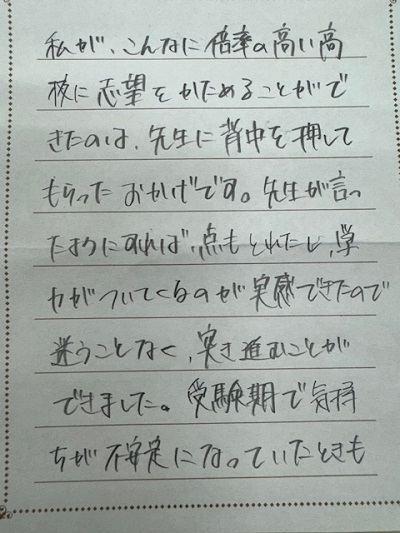 私が、こんなに倍率の高い高
校に志望をかためることがで
きたのは、先生に背中を押して
もらったおかげです。先生が言っ
たようにすれば、点もとれたし、学
力がついてくるのが実感できたので
迷うことなく、突き進むことが
できました。受験期で気持
ちが不安定になっていたときも